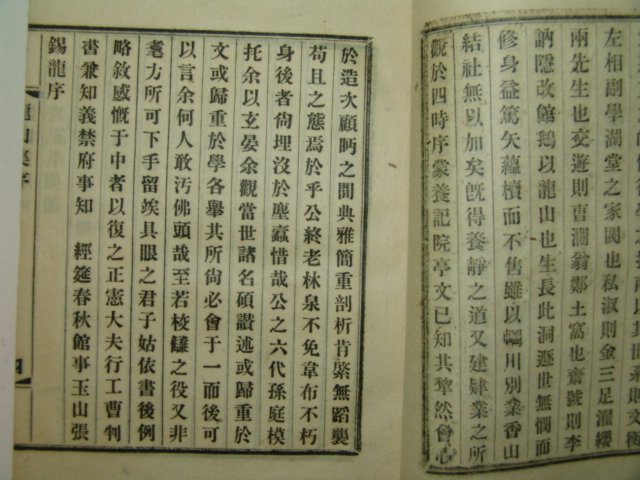 左相副學湖堂之家閥也私淑則金三足濯纓
兩先生也交遊則曺澗翁鄭土富也齋號則李
訥隱改館鵝以龍山也生長此洞遯世無憫而
修身益篤矣蘊櫝而不售雖以輞川別業香山
結社無以加矣旣得養靜之道又建肄業之所
觀於四時序蒙養記院亭文已知其犂然會心
於造次顧眄之間典雅簡重剖析肯綮無蹈襲
苟且之態焉於乎公終老林泉不免韋布不朽
身後者尙埋沒於塵蠹惜哉公之六代孫庭模
托余以玄晏余觀當世諸名碩讚述或歸重於
文或歸重於學各舉其所尙必會于一而後可
以言余何人敢汚佛頭哉至若校讎之役又非
耄方所可下手留竢具眼之君子姑依書後例
略敘感慨于中者以復之正憲大夫行工曹判
書兼知義禁府事知 經筵春秋館事玉山張
錫龍序